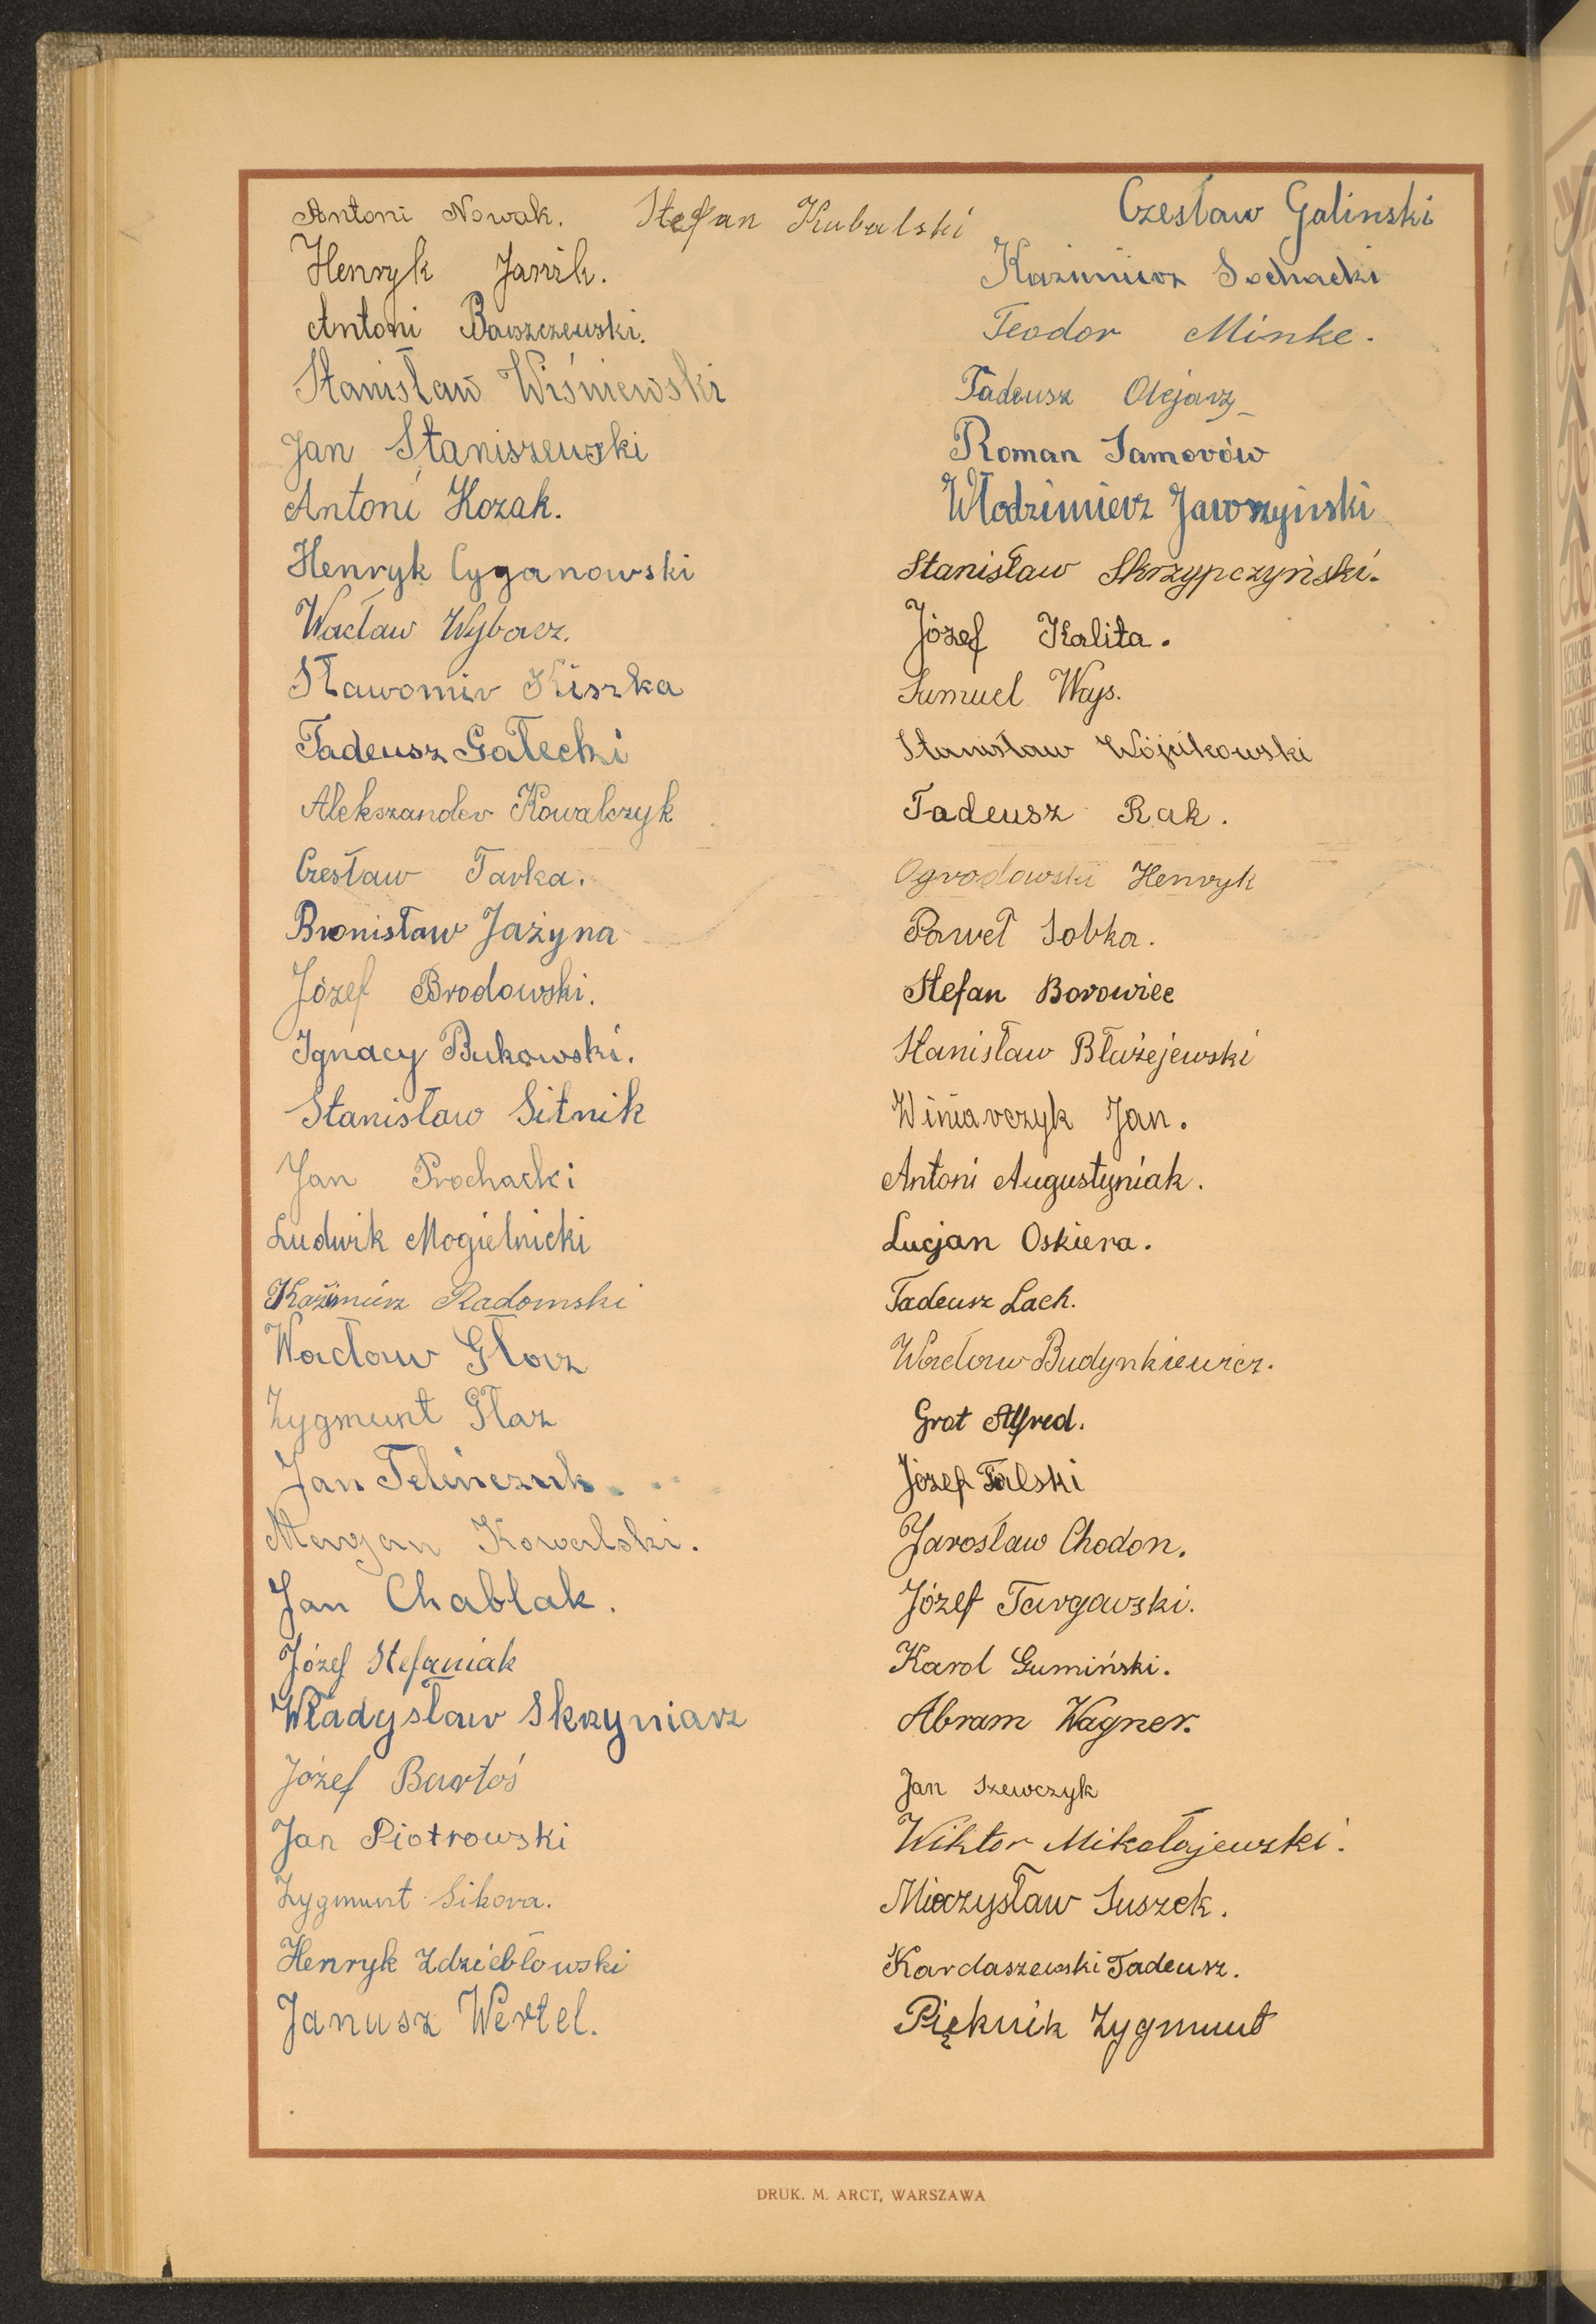 Antoni Nowak. Stefan Kubalski Czesław Galinski
Henryk Janik.
Antoni Barszczewski.
Stanisław Wiśniewski
Jan Staniszewski
Antoni Kozak.
Henryk Cyganowski
Wacław Wybacz.
Sławomir Kiszka
Tadeusz Gałecki
Alekszander Kowalczyk
Czesław Tarka.
Bronisław Jażyna
Józef Brodowski.
Ignacy Bukowski.
Stanisław Sitnik
Jan Prochacki
Ludwik Mogielnicki
Kazimierz Radomski
Wacław Głaz
Zygmunt Głaz
Jan
Marjan Kowalski.
Jan Chablak.
Józef Stefaniak
Władysław Skrzyniarz
Józef Bartoś
Jan Piotrowski
Zygmunt Sikora.
Henryk Zdziebłowski
Janusz Wertel.
Kazimierz Sochacki
Teodor Minke.
Tadeusz Olejarz
Roman Samorów
Włodzimierz Jaroszyński
Stanisław Skrzypczyński.
Józef Kalita.
Samuel Ways.
Stanisław Wójcikowski
Tadeusz Rak.
Ogrodowski Henryk
Paweł Sobka.
Stefan Borowiec
Stanisław Błażejewski
Winiarczyk Jan.
Antoni Augustyniak.
Lucjan Oskiera.
Tadeusz Lach.
Wacław Budynkiewicz.
Grot Alfred.
Józef Falski
Jarosław Chodon.
Józef Targawski.
Karol Gumiński.
Abram Wagner.
Jan Szewczyk
Wiktor Mikołajewski.
Mieczysław Suszek.
Kardaszewski Tadeusz.
Pięknik Zygmunt
DRUK. M. ARCT, WARSZAWA